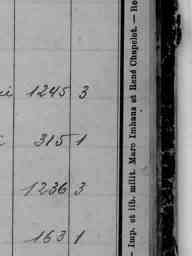 1245 3
315 1
1236 3
163 1
— Imp. et lib. milit. Marc Imhaus et René Chapelot. —